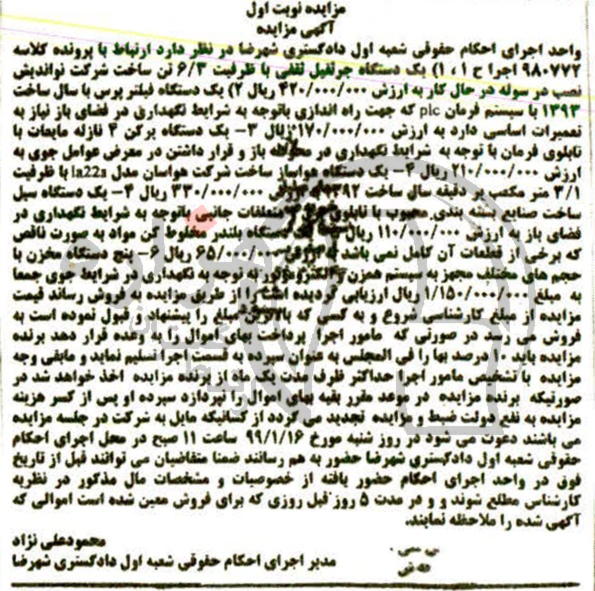 مزایده نوبت اول
آگهی مزایده
واحد اجرای احکام حقوقی شعبه اول دادگستری شهرضا در نظر دارد ارتباط با پرونده کلاسه
۹۸۰۷۷۲ اجرا ح ا ۱ ۱) یک دستگاه جرثقیل ثقفی با ظرفیت ۶/۳ تن ساخت شرکت نواندیش
نصب در سوله در حال کار به ارزش ۴۲۰/۰۰۰/۰۰۰ ریال ۲) یک دستگاه فیلتر پرس با سال ساخت
۱۳۹۳ با سیستم فرمان plc که جهت راه اندازی باتوجه به شرایط نگهداری در فضای باز نیاز به
تعمیرات اساسی دارد به ارزش ۱۷۰/۰۰۰/۰۰۰ ریال ۳- یک دستگاه پرکن ۴ نازله مایعات با
تابلوی فرمان با توجه به شرایط نگهداری در محوطه باز و قرار داشتن در معرض عوامل جوی به
ارزش ۲۱۰/۰۰۰/۰۰۰ ریال ۴- یک دستگاه هواساز ساخت شرکت هواسان مدل la22s با ظرفیت
۳/۱ متر مکعب بر دقیقه سال ساخت ۱۳۹۲ به ارزش ۳۳۰/۰۰۰/۰۰۰ ریال ۴- یک دستگاه سیل
ساخت صنایع بسته بندی محبوب با تابلوی متعلقات جانبی باتوجه به شرایط نگهداری در
فضای باز به ارزش ۱۱۰/۰۰۰/۰۰۰ ریال یک دستگاه بلندر مخلوط کن مواد به صورت ناقص
که برخی از قطعات آن کامل نمی باشد به ارزش ۶۵/۰۰۰/۰۰۰ ریال ۶- پنج دستگاه مخزن با
حجم های مختلف مجهز به سیستم همزن و الکتروموتور به توجه به نگهداری در شرایط جوی جمعا
به مبلغ ۱/۱۵۰/۰۰۰/۰۰۰ ریال ارزیابی گردیده است را از طریق مزایده به فروش رساند قیمت
مزایده از مبلغ کارشناسی شروع و به کسی که بالاترین مبلغ را پیشنهاد و قبول نموده است به
فروش می رسد در صورتی که مامور اجرا پرداخت بهای اموال را به وعده قرار دهد برنده
مزایده باید ۱۰ درصد بها را فی المجلس به عنوان سپرده به قسمت اجرا تسلیم نماید و مابقی وجه
مزایده با تشخیص مامور اجرا حداکثر ظرف مدت یک ماه از برنده مزایده اخذ خواهد شد در
صورتیکه برنده مزایده در موعد مقرر بقیه بهای اموال را نپردازد سپرده او پس از کسر هزینه
مزایده به نفع دولت ضبط و مزایده تجدید می گردد از کسانیکه مایل به شرکت در جلسه مزایده
می باشند دعوت می شود در روز شنبه مورخ ۹۹/۱/۱۶ ساعت ۱۱ صبح در محل اجرای احکام
حقوقی شعبه اول دادگستری شهرضا حضور به هم رسانند ضمنا متقاضیان می توانند قبل از تاریخ
فوق در واحد اجرای احکام حضور یافته از خصوصیات و مشخصات مال مذکور در نظریه
کارشناس مطلع شوند و و در مدت ۵ روز قبل روزی که برای فروش معین شده است اموالی که
آگهی شده را ملاحظه نمایند.
محمودعلی نژاد
مدیر اجرای احکام حقوقی شعبه اول دادگستری شهرضا